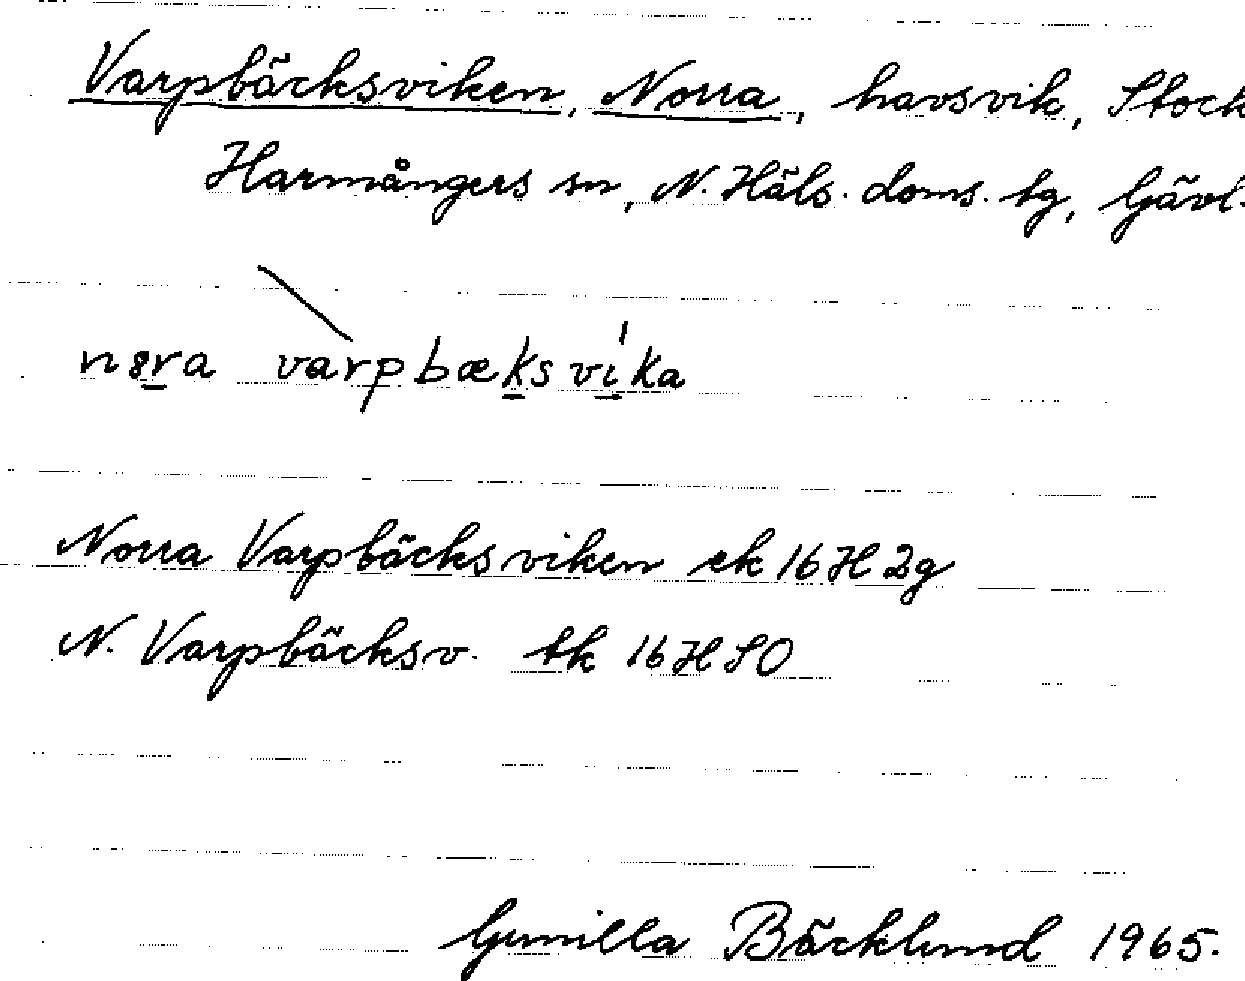 Varpbäcksviken, Norra, havsvik, Stock
Harmångers sn, N. Häls. doms. tg, Gävl.
nøra varpbæksvika
Norra Varpbäcksviken ek 16H 2g
N. Varpbäcksv. tk 16H SO
Gunilla Bäcklund 1965.